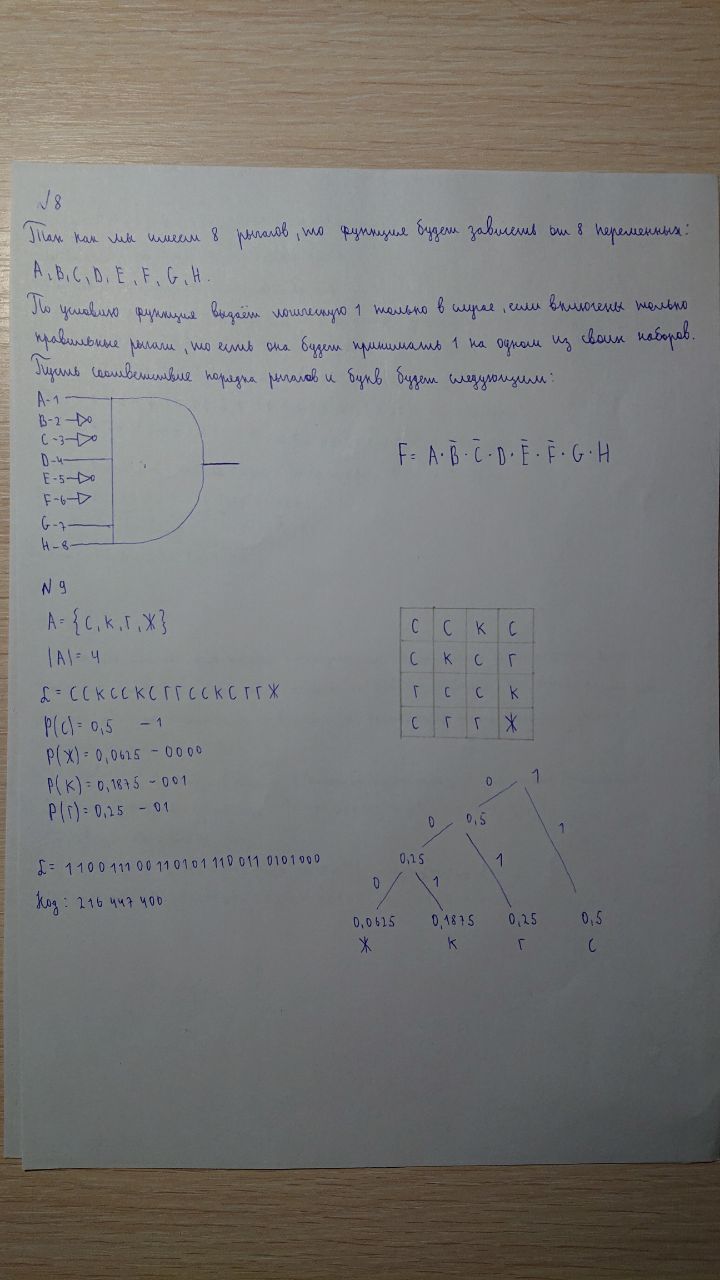 №8
Так как мы имеем 8 рычагов, то функция будет зависеть от 8 переменных:
A, B, C, D, E, F, G, H.
По условию функция выдаёт логическую 1 только в случае, если включены только
правильные рычаги, то есть она будет принимать 1 на одном из своих наборов.
Пусть соответствие порядка рычагов и букв будет следующим:
A-1
B-2
C-3
D-4
E-5
F-6
G-7
H-8
F = A · B̄ · C̄ · D · Ē · F̄ · G · H
N 9
A = {С, К, Г, Ж}
|A| = 4
L = С С К С С К С Г Г С С К С Г Г Ж
P(С) = 0,5 - 1
P(Ж) = 0,0625 - 0000
P(К) = 0,1875 - 001
P(Г) = 0,25 - 01
L = 1 1 0 0 1 1 1 0 0 1 1 0 1 0 1 1 1 0 0 1 1 0 1 0 1 0 0 0
Код: 216 447 400
С С К С
С К С Г
Г С С К
С Г Г Ж
0 1
0 0,5 1
0,25 1
0 1
0,0625 0,1875 0,25 0,5
Ж К Г С